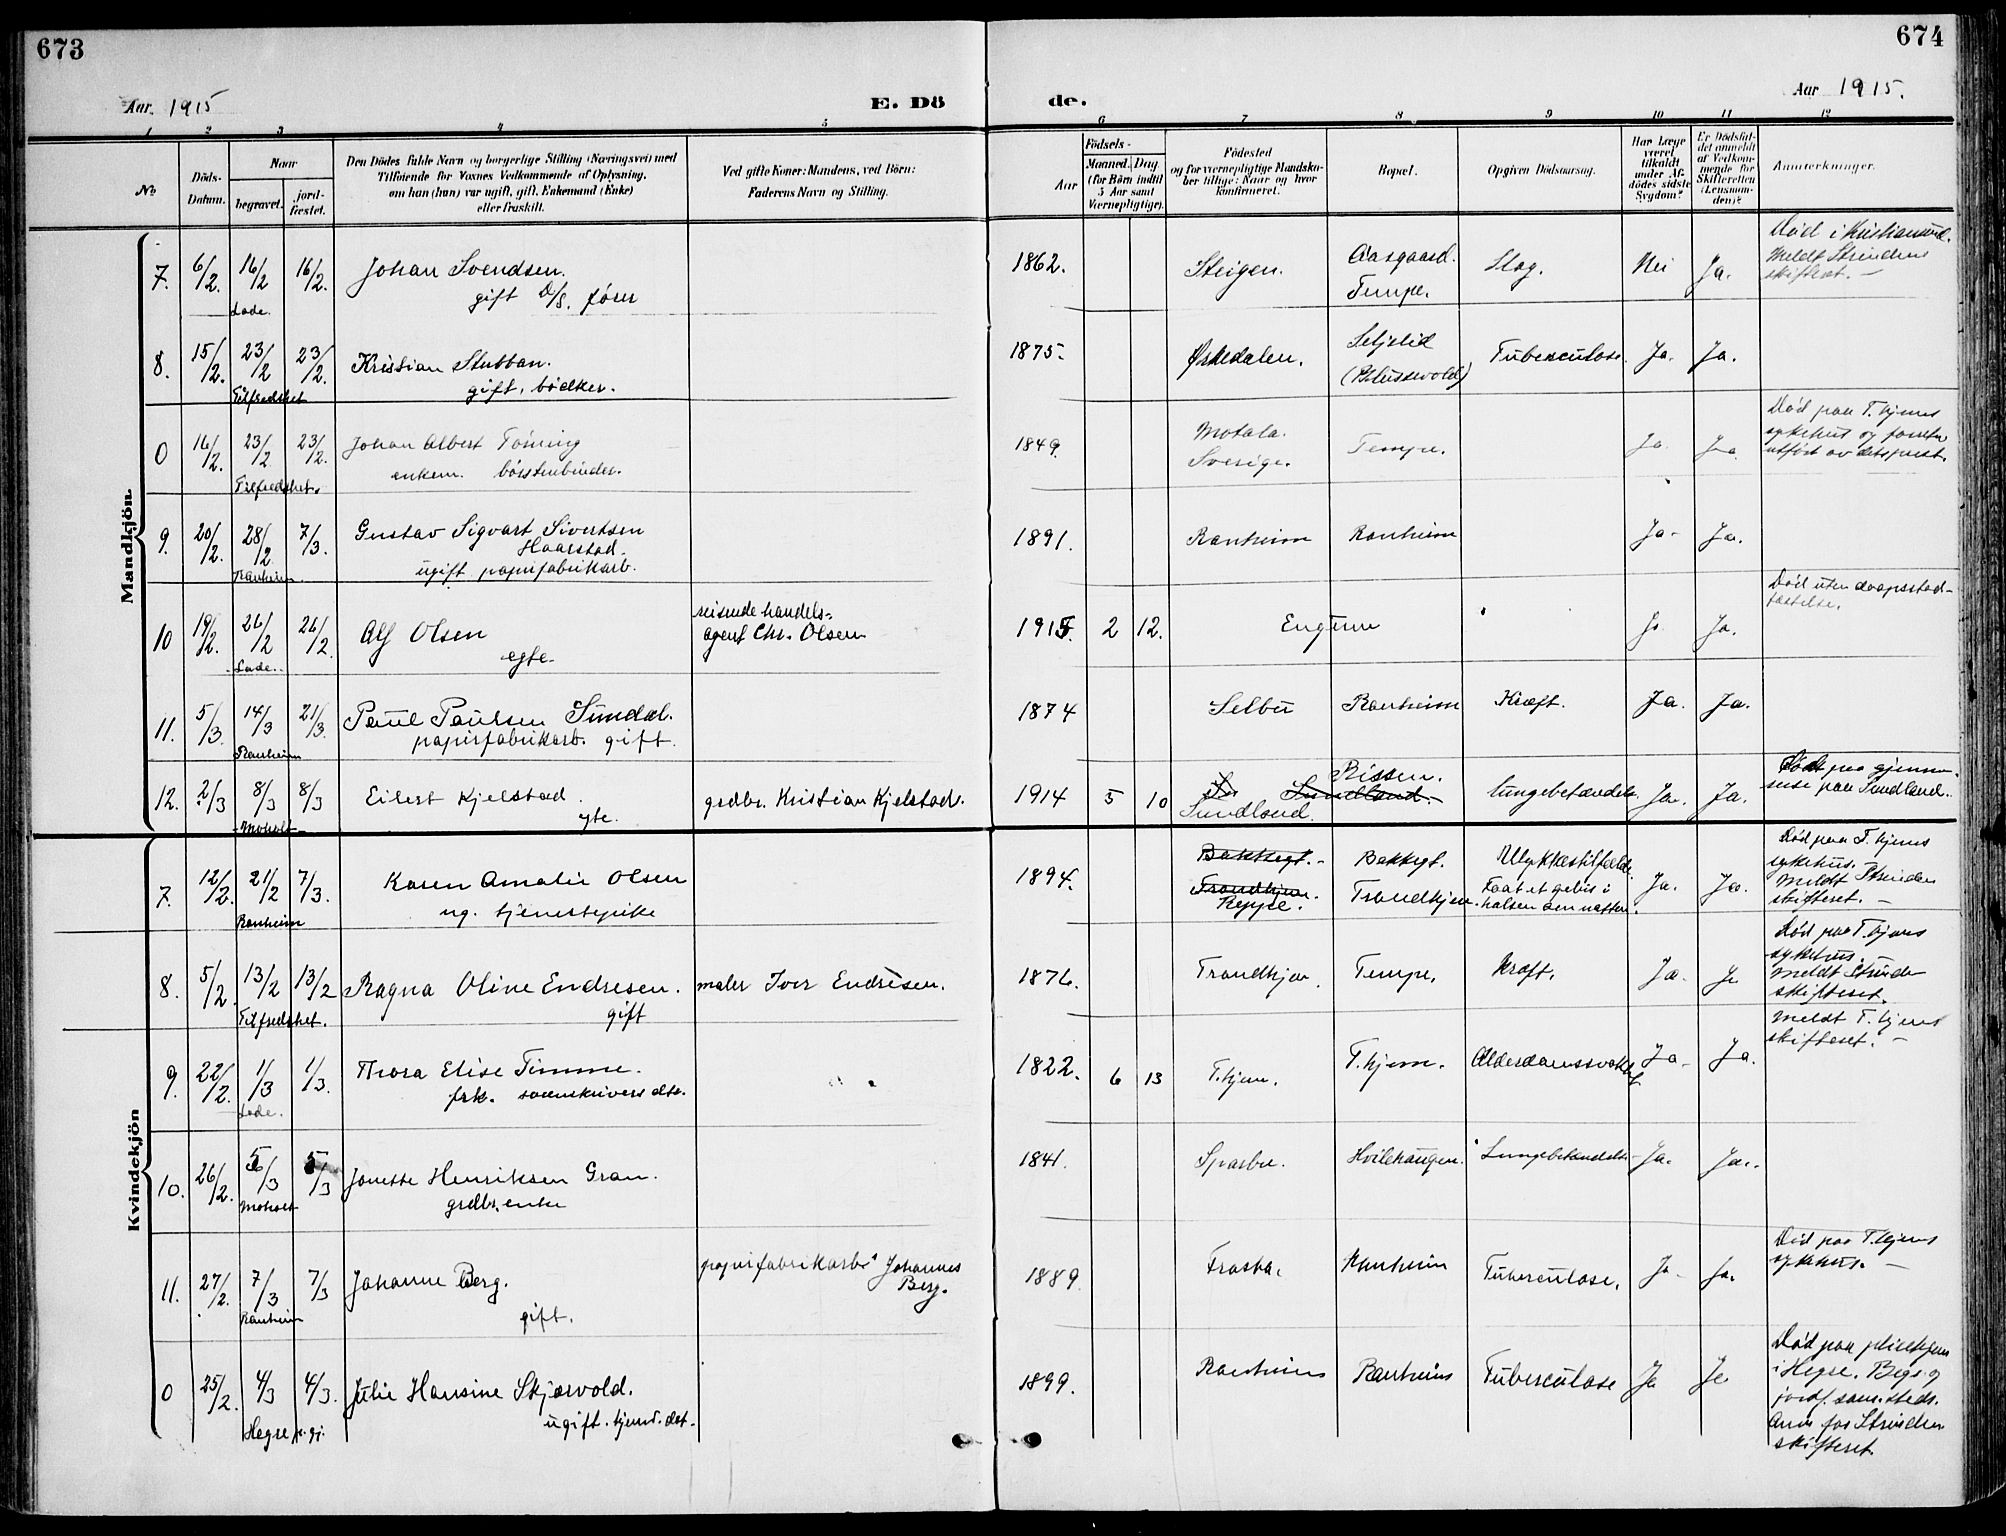 673
674
Aar 1915
E. Dö
de.
Aar 1915.
1 2 3 4 5 6 7 8 9 10 11 12
No
Döds-
Datum.
Naar
begravet.
jord-
fæstet.
Den Dödes fulde Navn og borgerlige Stilling (Næringsvei) med
Tilföiende for Voxnes Vedkommende af Oplysning,
om han (hun) var ugift, gift, Enkemand (Enke)
eller fraskilt.
Ved gifte Koner: Mandens, ved Börn:
Faderens Navn og Stilling.
Födsels-
Aar
Maaned. Dag
(for Börn indtil
5 Aar samt
Værnepligtige).
Födested
og for værnepligtige Mandska-
ber tillige: Naar og hvor
konfirmeret.
Bopæl.
Opgiven Dödsaarsag.
Har Læge
været
tilkaldt
under Af-
dödes sidste
Sygdom?
Er Dödsfal-
det anmeldt
af Vedkom-
mende for
Skifteretten
(Lensman-
den)?
Anmerkninger.
Mandkjön
7. 6/2. 16/2 16/2. Johan Svendsen. 1862. Steigen. Aasgaard. Slag. Nei Ja. Död i Kristiansund.
Lade. gift D/S. förer Tempe. Meldt Strinden
skifteret. —
8. 15/2. 23/2 23/2. Kristian Stubban. 1875. Ørkedalen. Seljelid Tuberculose. Ja. Ja.
Tilfredshet gift, bödker. (Blussevold)
0 16/2. 23/2 23/2. Johan Albert Töning 1849. Motala. Tempe. Ja. Ja Död paa T.hjems
Tilfredshet. enkem. börstenbinder. Sverige. sykehus og
utfört av dets prest.
9. 20/2. 28/2 7/3. Gustav Sigvart Sivertsen 1891. Ranheim Ranheim Ja- Ja.
Haarstad.
Ranheim ugift papirfabrikarb.
10 19/2. 26/2 26/2. Alf Olsen reisende handels- 1915. 2 12. Engtun Ja Ja. Död uten daapsstad-
Lade. egte. agent Chr. Olsen fæstelse.
11. 5/3. 14/3 21/3. Paul Paulsen Sundal. 1874 Selbu Ranheim Kræft. Ja. Ja.
Ranheim papirfabrikarb. gift.
12. 2/3 8/3 8/3 Eilert Kjelstad. grdbr. Kristian Kjelstad. 1914 5 10 Sundland. Rissen. Lungebetændelse Ja. Ja. Död paa gjennem-
Moholt egte. Sundland. reise paa Sundland.
Kvindekjön
7. 12/2. 21/2 7/3. Karen Amalie Olsen 1894. Bakkegt. Bakkegt. Ulykkestilfælde. Ja. Ja. Död paa T.hjems
Ranheim ug. tjenestepike Trondhjem. Trondhjem. Faat et gebis i sykehus. —
Reppe. halsen om natten. Meldt Strinden
skifteret. —
8. 5/2. 13/2 13/2 Ragna Oline Endresen. maler Iver Endresen. 1876. Trondhjem Tempe. Kræft. Ja. Ja Död paa T.hjems
Tilfredshet. gift sykehus. —
Meldt Strinde
skifteret.
9. 22/2. 1/3 1/3. Thora Elise Timme. 1822. 6 13 T.hjem. T.hjem. Alderdomssvakhet Ja- Ja. Meldt T.hjems
Lade. frk. sorenskrivers dtr. skifteret. —
10. 26/2. 5/3 5/3 Jonette Henriksen Gran. 1841. Sparbu. Hvilehaugen. Lungebetændelse Ja. Ja.
Moholt grdbr. enke
11. 27/2. 7/3 7/3 Johanne Berg. papirfabrikarb. Johannes 1889. Frosta. Ranheim Tuberculose. Ja- Ja. Död paa T.hjems
Ranheim gift. Berg. sykehus. —
0 25/2. 4/3 4/3. Julie Hansine Skjervold. 1899. Ranheim Ranheim Tuberculose Ja Ja Död paa pleiehjem
Hegre k.gj. ugift. hjemv. dat- i Hegre. Begr. og
jordf. samsteds.
Anm. for Strinden
skifteret.